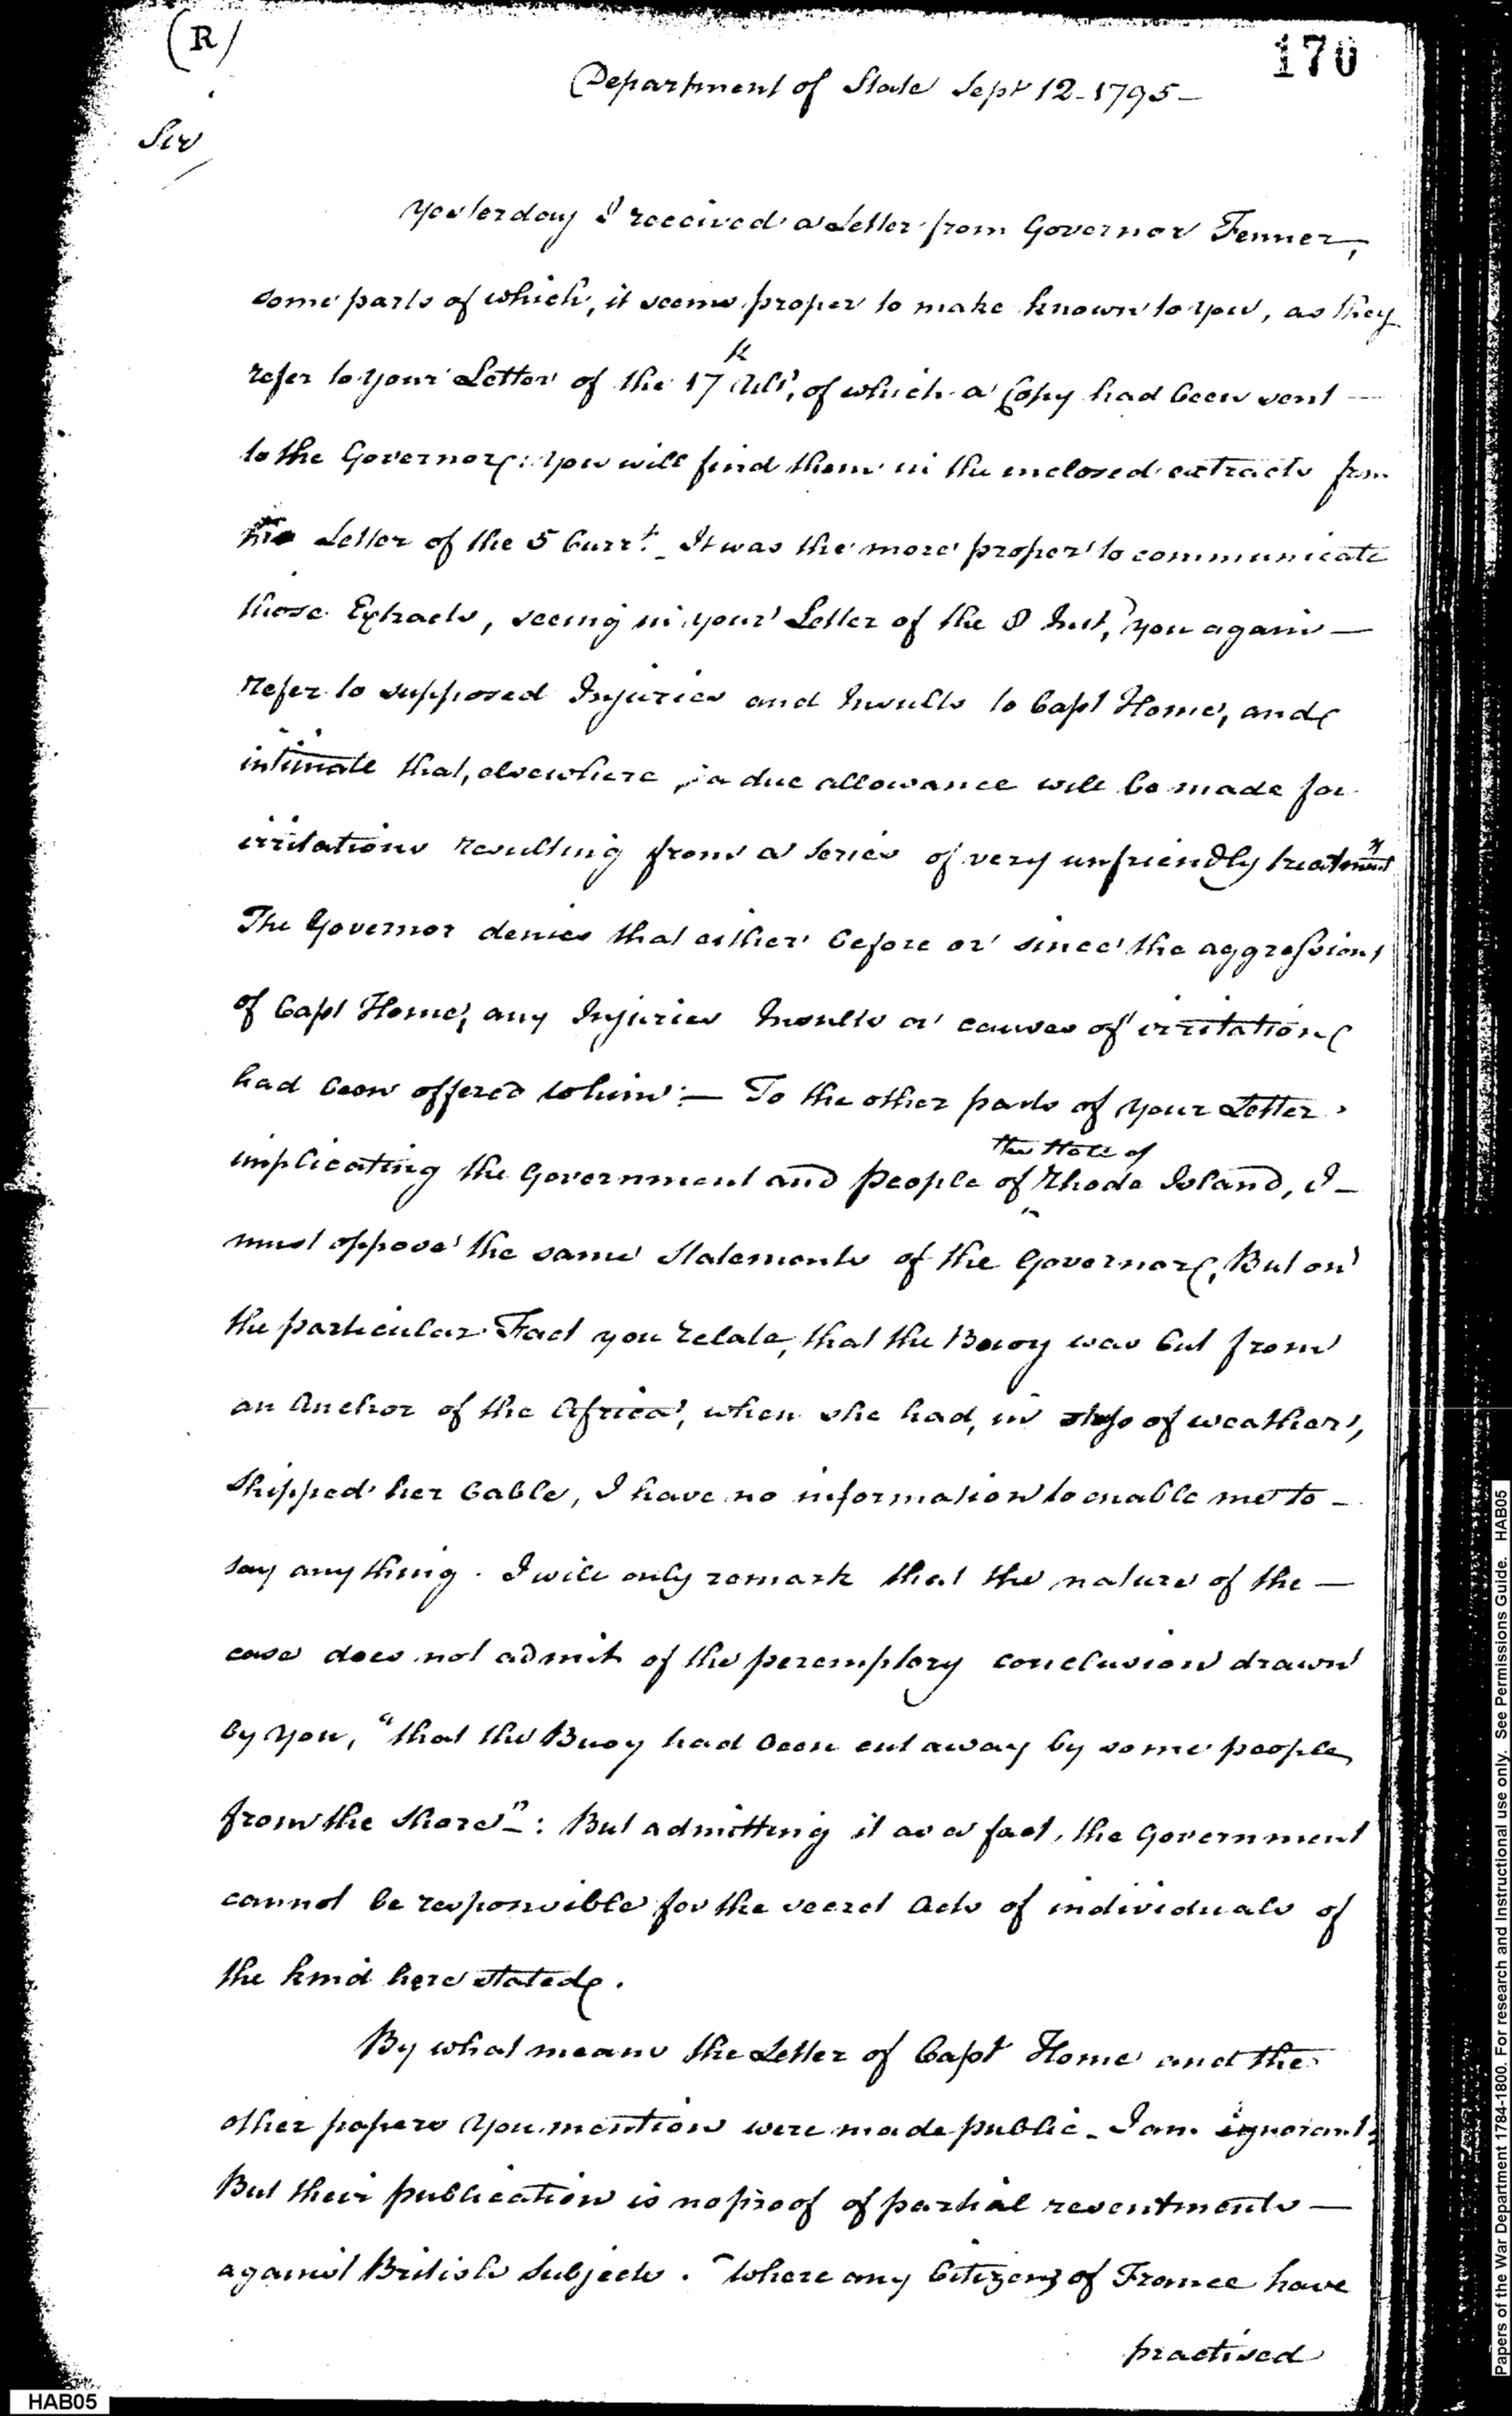 (R)
170
Department of State Sept 12 - 1795 -
Sir
Yesterday I received a Letter from Governor Fenner,
some parts of which, it seems proper to make known to you, as they
refer to your Letter of the 17th Ult, of which a Copy had been sent
to the Governor: you will find them in the enclosed extracts from
his Letter of the 5 Curr.t - It was the more proper to communicate
those Extracts, seeing in your Letter of the 8 Inst, you again -
refer to supposed Injuries and Insults to Capt Home, and
intimate that, elsewhere, a due allowance will be made for
irritations resulting from a series of very unfriendly treatment
The Governor denies that either before or since the aggressions
of Capt Home, any Injuries Insults or causes of irritation
had been offered to him: - To the other parts of your Letter
implicating the Government and people of the State of Rhode Island, I -
must oppose the same statements of the Governor, But on
the particular Fact you relate, that the Buoy was Cut from
an Anchor of the Africa, when she had, in of weather,
Shipped her Cable, I have no information to enable me to -
say any thing. I will only remark that the nature of the -
case does not admit of the peremptory conclusion drawn
by you, "that the Buoy had been cut away by some people
from the shore" - : But admitting it as a fact, the Government
cannot be responsible for the secret Acts of individuals of
the kind here stated.
By what means the Letter of Capt Home and the
other papers you mention were made public - I am ignorant:
But their publication is no proof of partial resentments -
against British Subjects. Where any Citizens of France have
practised
HAB05
Papers of the War Department 1784-1800. For research and Instructional use only. See Permissions Guide. HAB05